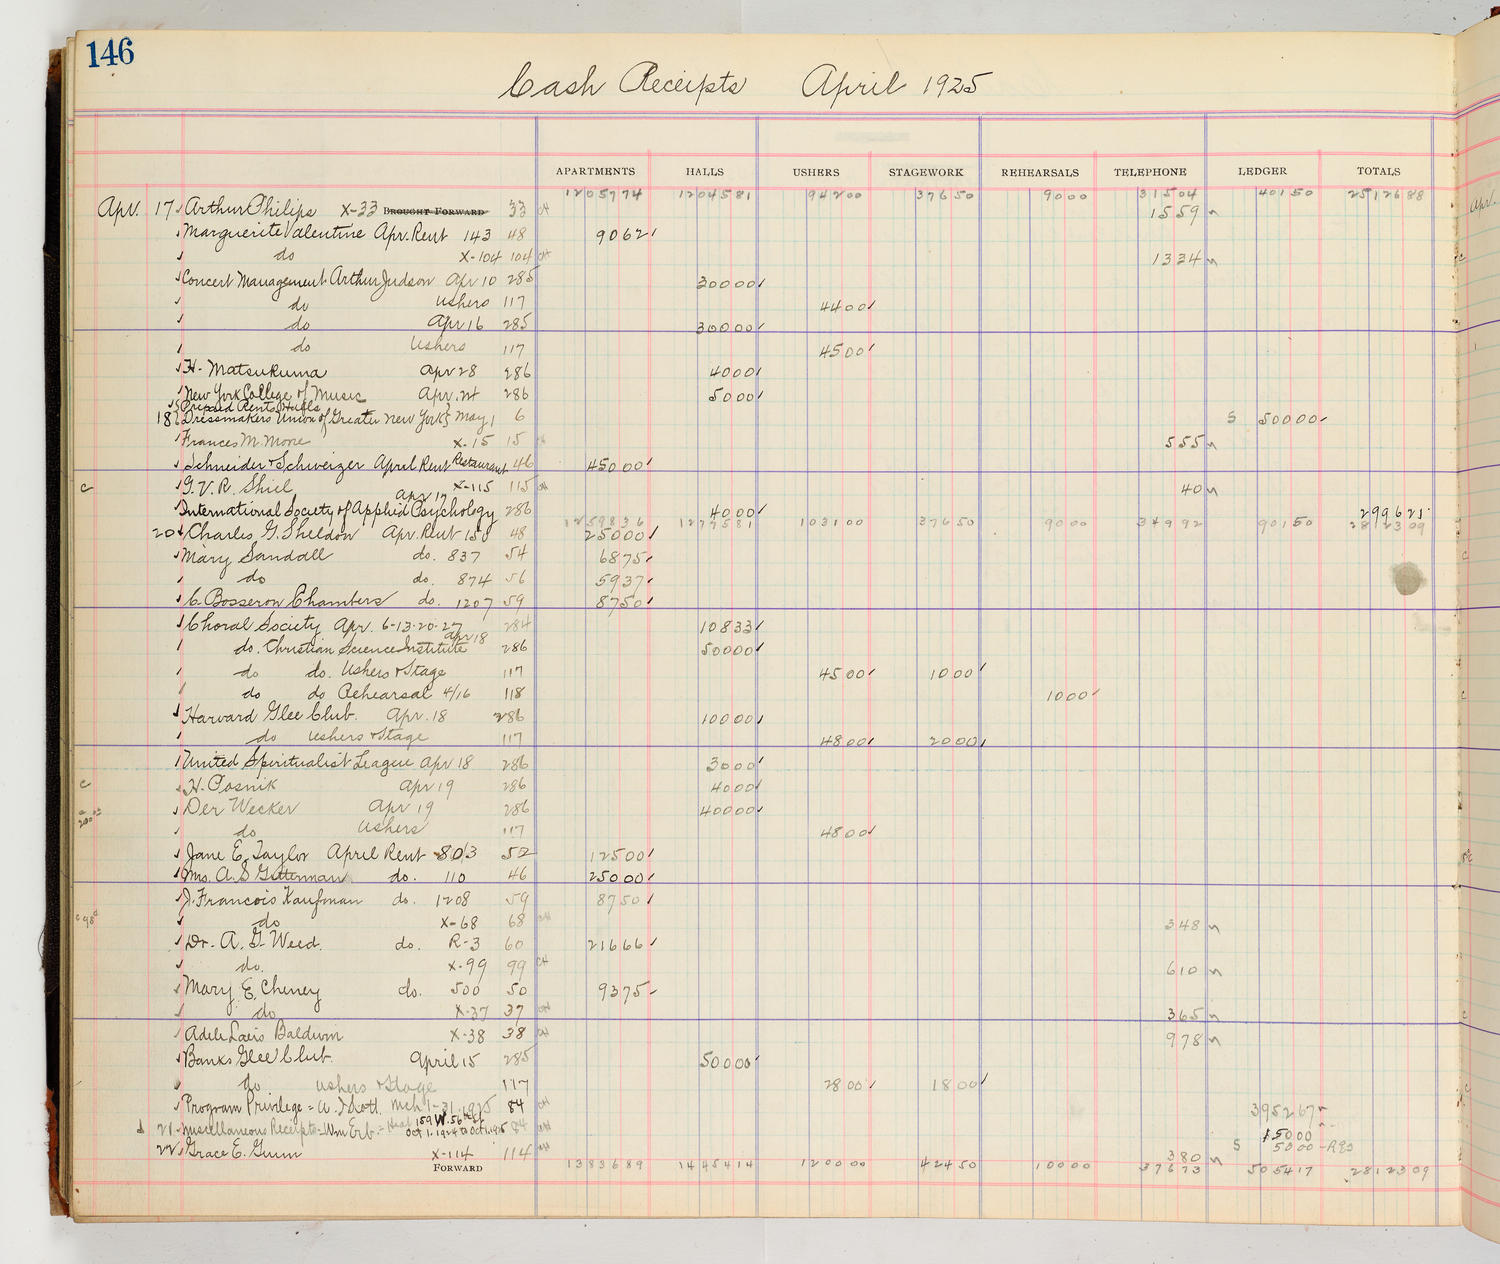 146
Cash Receipts April 1925
APARTMENTS HALLS USHERS STAGEWORK REHEARSALS TELEPHONE LEDGER TOTALS
1205774 1204581 94200 37650 9000 31504 40150 2512688
Apr. 17 Arthur Philips X-33 BROUGHT FORWARD 33 1559
Marguerite Valentine Apr. Rent 143 48 9062
do X-104 104 1334
Concert Management Arthur Judson Apr 10 285 30000
do Ushers 117 4400
do Apr 16 285 30000
do Ushers 117 4500
H. Matsukuma Apr 28 286 4000
New York College of Music Apr. 24 286 5000
Prepaid Rents Halls
18 Dressmakers Union of Greater New York May 1 6 S 50000
Frances M. More X-15 15 555
Schneider & Schweizer April Rent Restaurant 46 45000
c G.V.R. Shiel X-115 115 40
International Society of Applied Psychology Apr 17 286 4000 299621
1259836 1277581 103100 37650 9000 34992 90150 2812309
20 Charles G. Sheldon Apr. Rent 150 48 25000
Mary Sandall do. 837 54 6875
do do. 874 56 5937
C. Bosseron Chambers do. 1207 59 8750
Choral Society Apr. 6-13-20-27 284 10833
do. Christian Science Institute Apr 18 286 50000
do do. Ushers & Stage 117 4500 1000
do do Rehearsal 4/16 118 1000
Harvard Glee Club. Apr. 18 286 10000
do Ushers & Stage 117 4800 2000
United Spiritualist League Apr 18 286 3000
c H. Posnik Apr 19 286 4000
Der Wecker Apr 19 286 40000
do Ushers 117 4800
Jane E. Taylor April Rent 803 52 12500
Mrs. A. S. Gutterman do. 110 46 25000
J. Francois Kaufman do. 1208 59 8750
do X-68 68 348
Dr. A. G. Weed. do. R-3 60 21666
do. X-99 99 610
Mary E. Cheney do. 500 50 9375
do X-37 37 365
Adele Lewis Baldwin X-38 38 978
Banks Glee Club. April 15 285 50000
do ushers & Stage 117 2800 1800
Program Privilege = Mch 1-31-1925 84 395267
21 Miscellaneous Receipts = Wm Erb. = Heat 159 W. 56th St. Oct 1-1924 to Oct 1-1925 84 15000
S 5000
22 Grace E. Gunn X-114 114 380
FORWARD 1383689 1445414 120000 42450 10000 37673 505417 2812309